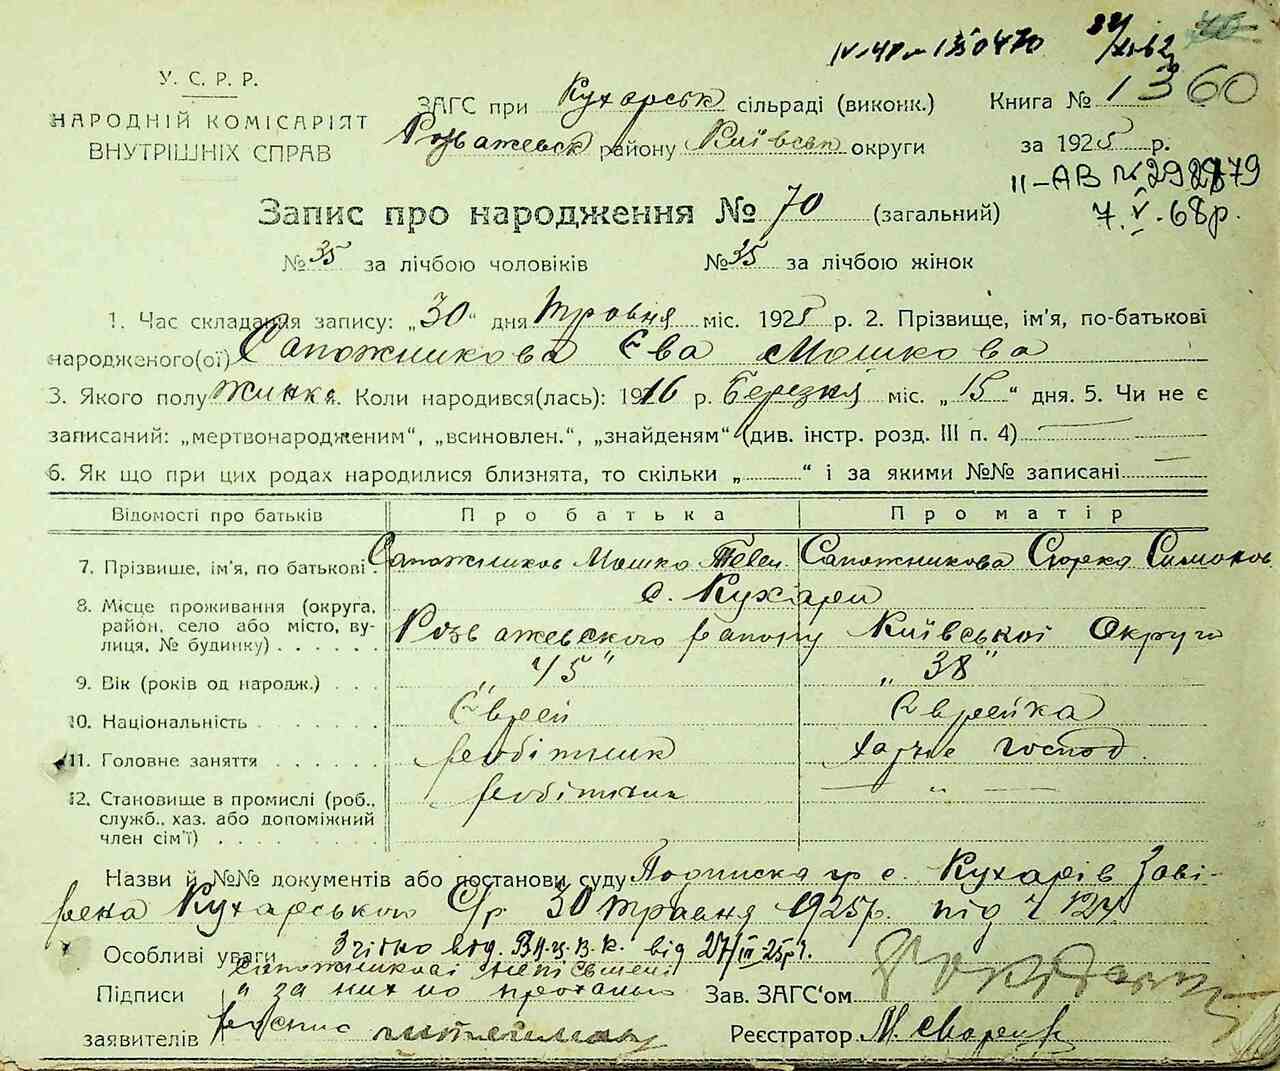 IV-ЧР № 150470
У. С. Р. Р.
НАРОДНІЙ КОМІСАРІЯТ
ВНУТРІШНІХ СПРАВ
ЗАГС при Кухарськ сільраді (виконк.)
Розважевск району Київськ округи
Книга № 1360
за 1925 р.
II-АВ №
7.V.68р.
Запис про народження № 70 (загальний)
№ 35 за лічбою чоловіків № 35 за лічбою жінок
1. Час складання запису: „30“ дня Травня міс. 1925 р. 2. Прізвище, ім'я, по-батькові
народженого(ої) Сапожникова Єва Мошкова
3. Якого полу Жинка. Коли народився(лась): 1916 р. Березня міс. „15“ дня. 5. Чи не є
записаний: „мертвонародженим“, „всиновлен.“, „знайденям“ (див. інстр. розд. III п. 4)
6. Як що при цих родах народилися близнята, то скільки „ “ і за якими №№ записані
Відомості про батьків Про батька Про матір
7. Прізвище, ім'я, по батькові Сапожников Мошко Сапожникова Сюрка Симонов
8. Місце проживання (округа, с. Кухари
район, село або місто, ву- Розважевского району Київської Округи
лиця, № будинку)
9. Вік (років од народж.) „45“ „38“
10. Національність Єврей Єврейка
11. Головне заняття робітник господ.
12. Становище в промислі (роб., робітник — „ —
служб., хаз. або допоміжний
член сім'ї)
Назви й №№ документів або постанови суду Подписка гр с. Кухарів Заві-
рена Кухарського С/р 30 Травня 1925р. під Ч 124
Особливі уваги Згідно від 27/III-25р.
Сапожникові неписьмені
Підписи и за них по проханью Зав. ЗАГС'ом
заявителів Реєстратор М.